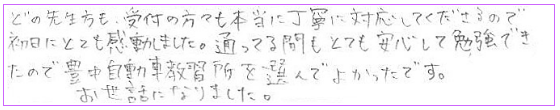 どの先生方も、受付の方々も本当に丁寧に対応してくださるので
初日にとても感動しました。通ってる間もとても安心して勉強でき
たので豊中自動車教習所を選んでよかったです。
お世話になりました。